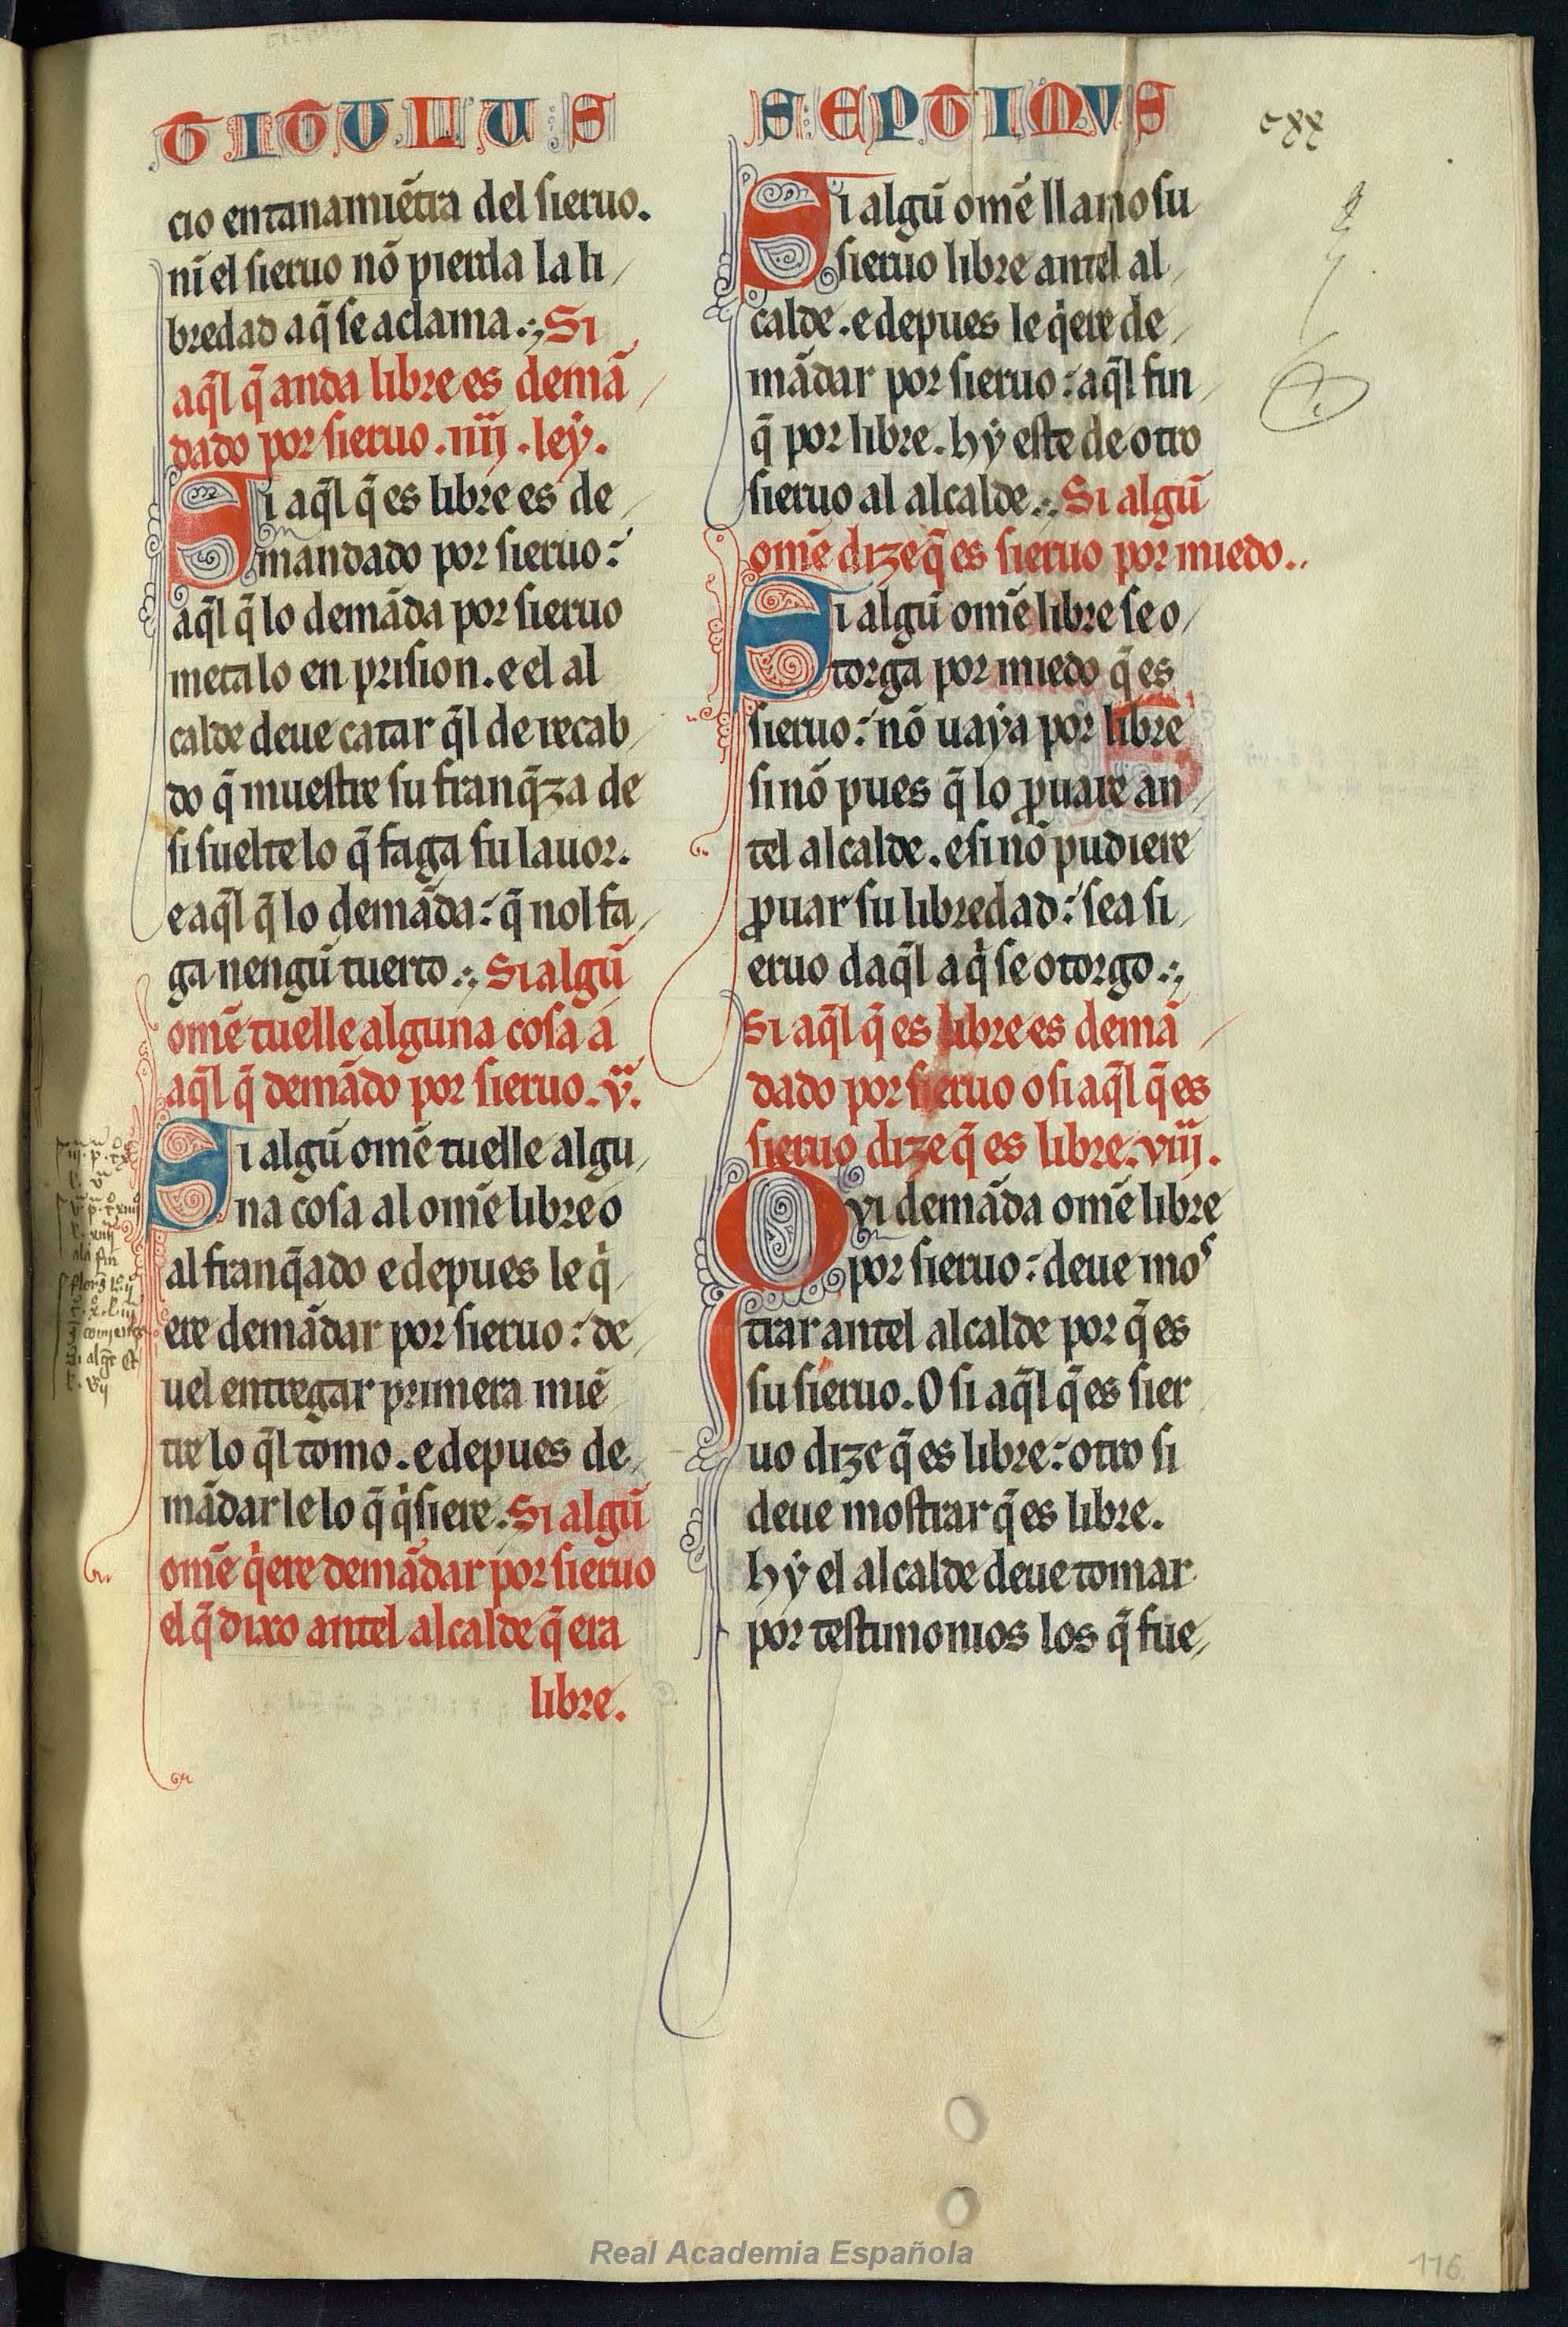 TITULUS
cio entanamiẽtra del sieruo.
nĩ el sieruo nõ pierda la li
bredad a q̃ se aclama. Si
aq̃l q̃ anda libre es demã
dado por sieruo .iiij. leẏ.
Si aq̃l q̃ es libre es de
mandado por sieruo:
aq̃l q̃ lo demãda por sieruo
meta lo en prision. e el al
calde deue catar q̃l de recab
do q̃ muestre su franq̃za de
si suelte lo q̃ faga su lauor.
e aq̃l q̃ lo demãda: q̃ nol fa
ga nengũ tuerto. Si algũ
omẽ tuelle alguna cosa a
aq̃l q̃ demãdo por sieruo. v.
Si algũ omẽ tuelle algu
na cosa al omẽ libre o
al franq̃ado e depues le q̍
ere demãdar por sieruo: de
uel entregar primera miẽ
tre lo q̃l tomo. e depues de
mãdar le lo q̃ q̍siere. Si algũ
omẽ q̍ere demãdar por sieruo
el q̃ dixo antel alcalde q̃ era
libre.
SEPTIMVS
Si algũ omẽ llamo su
sieruo libre antel al
calde. e depues le q̍ere de
mãdar por sieruo: aq̃l fin
q̃ por libre. hẏ este de otro
sieruo al alcalde. Si algũ
omẽ dize q̃ es sieruo por miedo..
Si algũ omẽ libre se o
torga por miedo q̃ es
sieruo: nõ uaẏa por libre
si nõ pues q̃ lo ꝓuare an
tel alcalde. e si nõ pudiere
ꝓuar su libredad: sea si
eruo daq̃l a q̍ se otorgo.
Si aq̃l q̃ es libre es demã
dado por sieruo o si aq̃l q̃ es
sieruo dize q̃ es libre. viij.
Qvi demãda omẽ libre
por sieruo: deue mos
trar antel alcalde por q̃ es
su sieruo. O si aq̃l q̃ es sier
uo dize q̃ es libre: otro si
deue mostrar q̃ es libre.
hẏ el alcalde deue tomar
por testimonios los q̃ fue
cxx
Real Academia Española
116